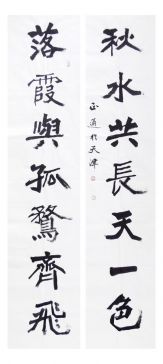 秋水共長天一色
落霞與孤鶩齊飛
正道於天津